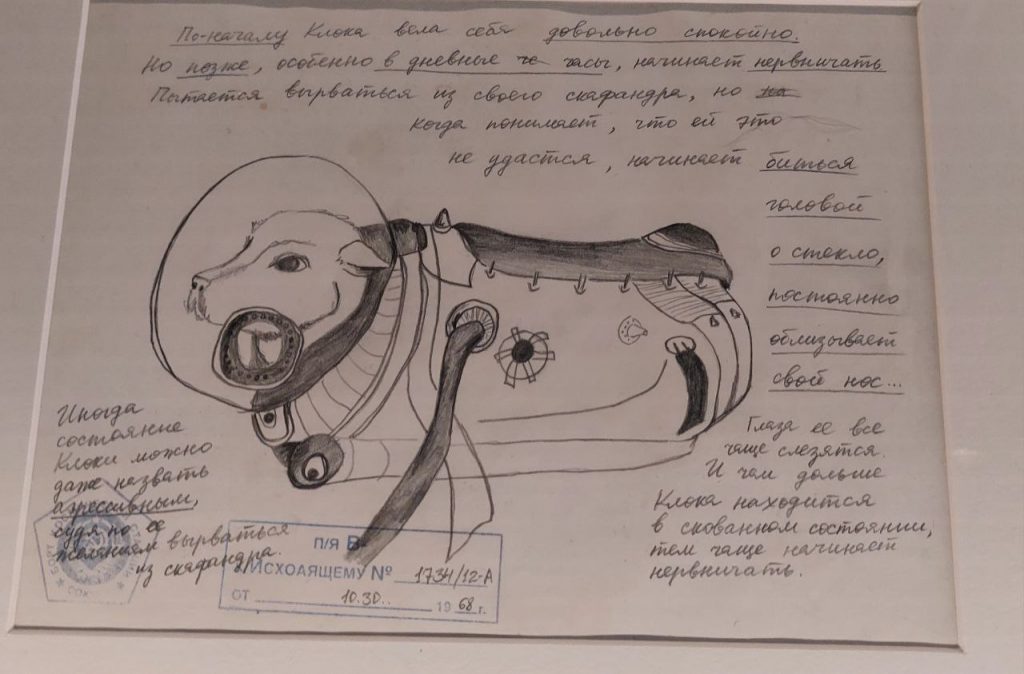 По-началу Клока вела себя довольно спокойно.
Но позже, особенно в дневные че часы, начинает нервничать
Пытается вырваться из своего скафандра, но на
когда понимает, что ей это
не удастся, начинает биться
головой
о стекло,
постоянно
облизывает
свой нос...
Иногда
состояние
Клоки можно
даже назвать
агрессивным,
судя по ее
желаниям вырваться
из скафандра.
Глаза ее все
чаще слезятся.
И чем дольше
Клока находится
в скованном состоянии,
тем чаще начинает
нервничать.
п/я В-
К ИСХОДЯЩЕМУ № 1734/12-А
ОТ 10.30.. 1968 г.